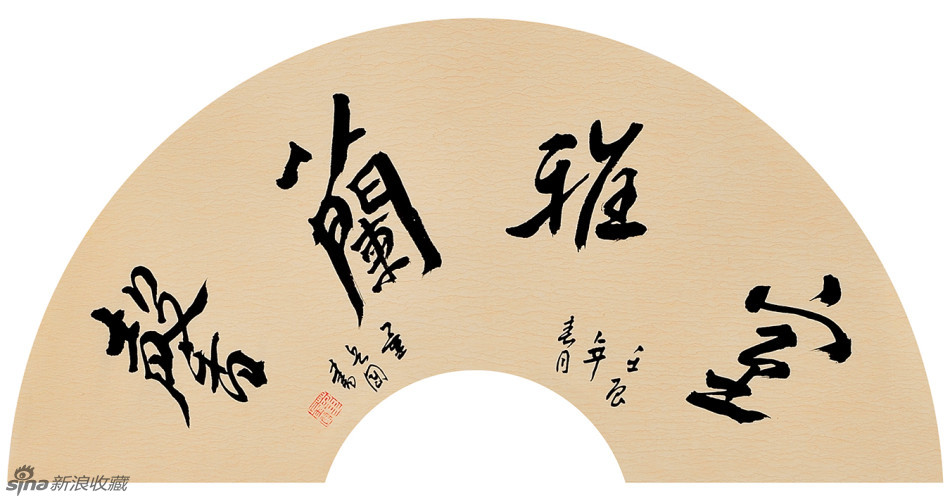 室雅蘭馨
壬辰
年
春月
sina新浪收藏